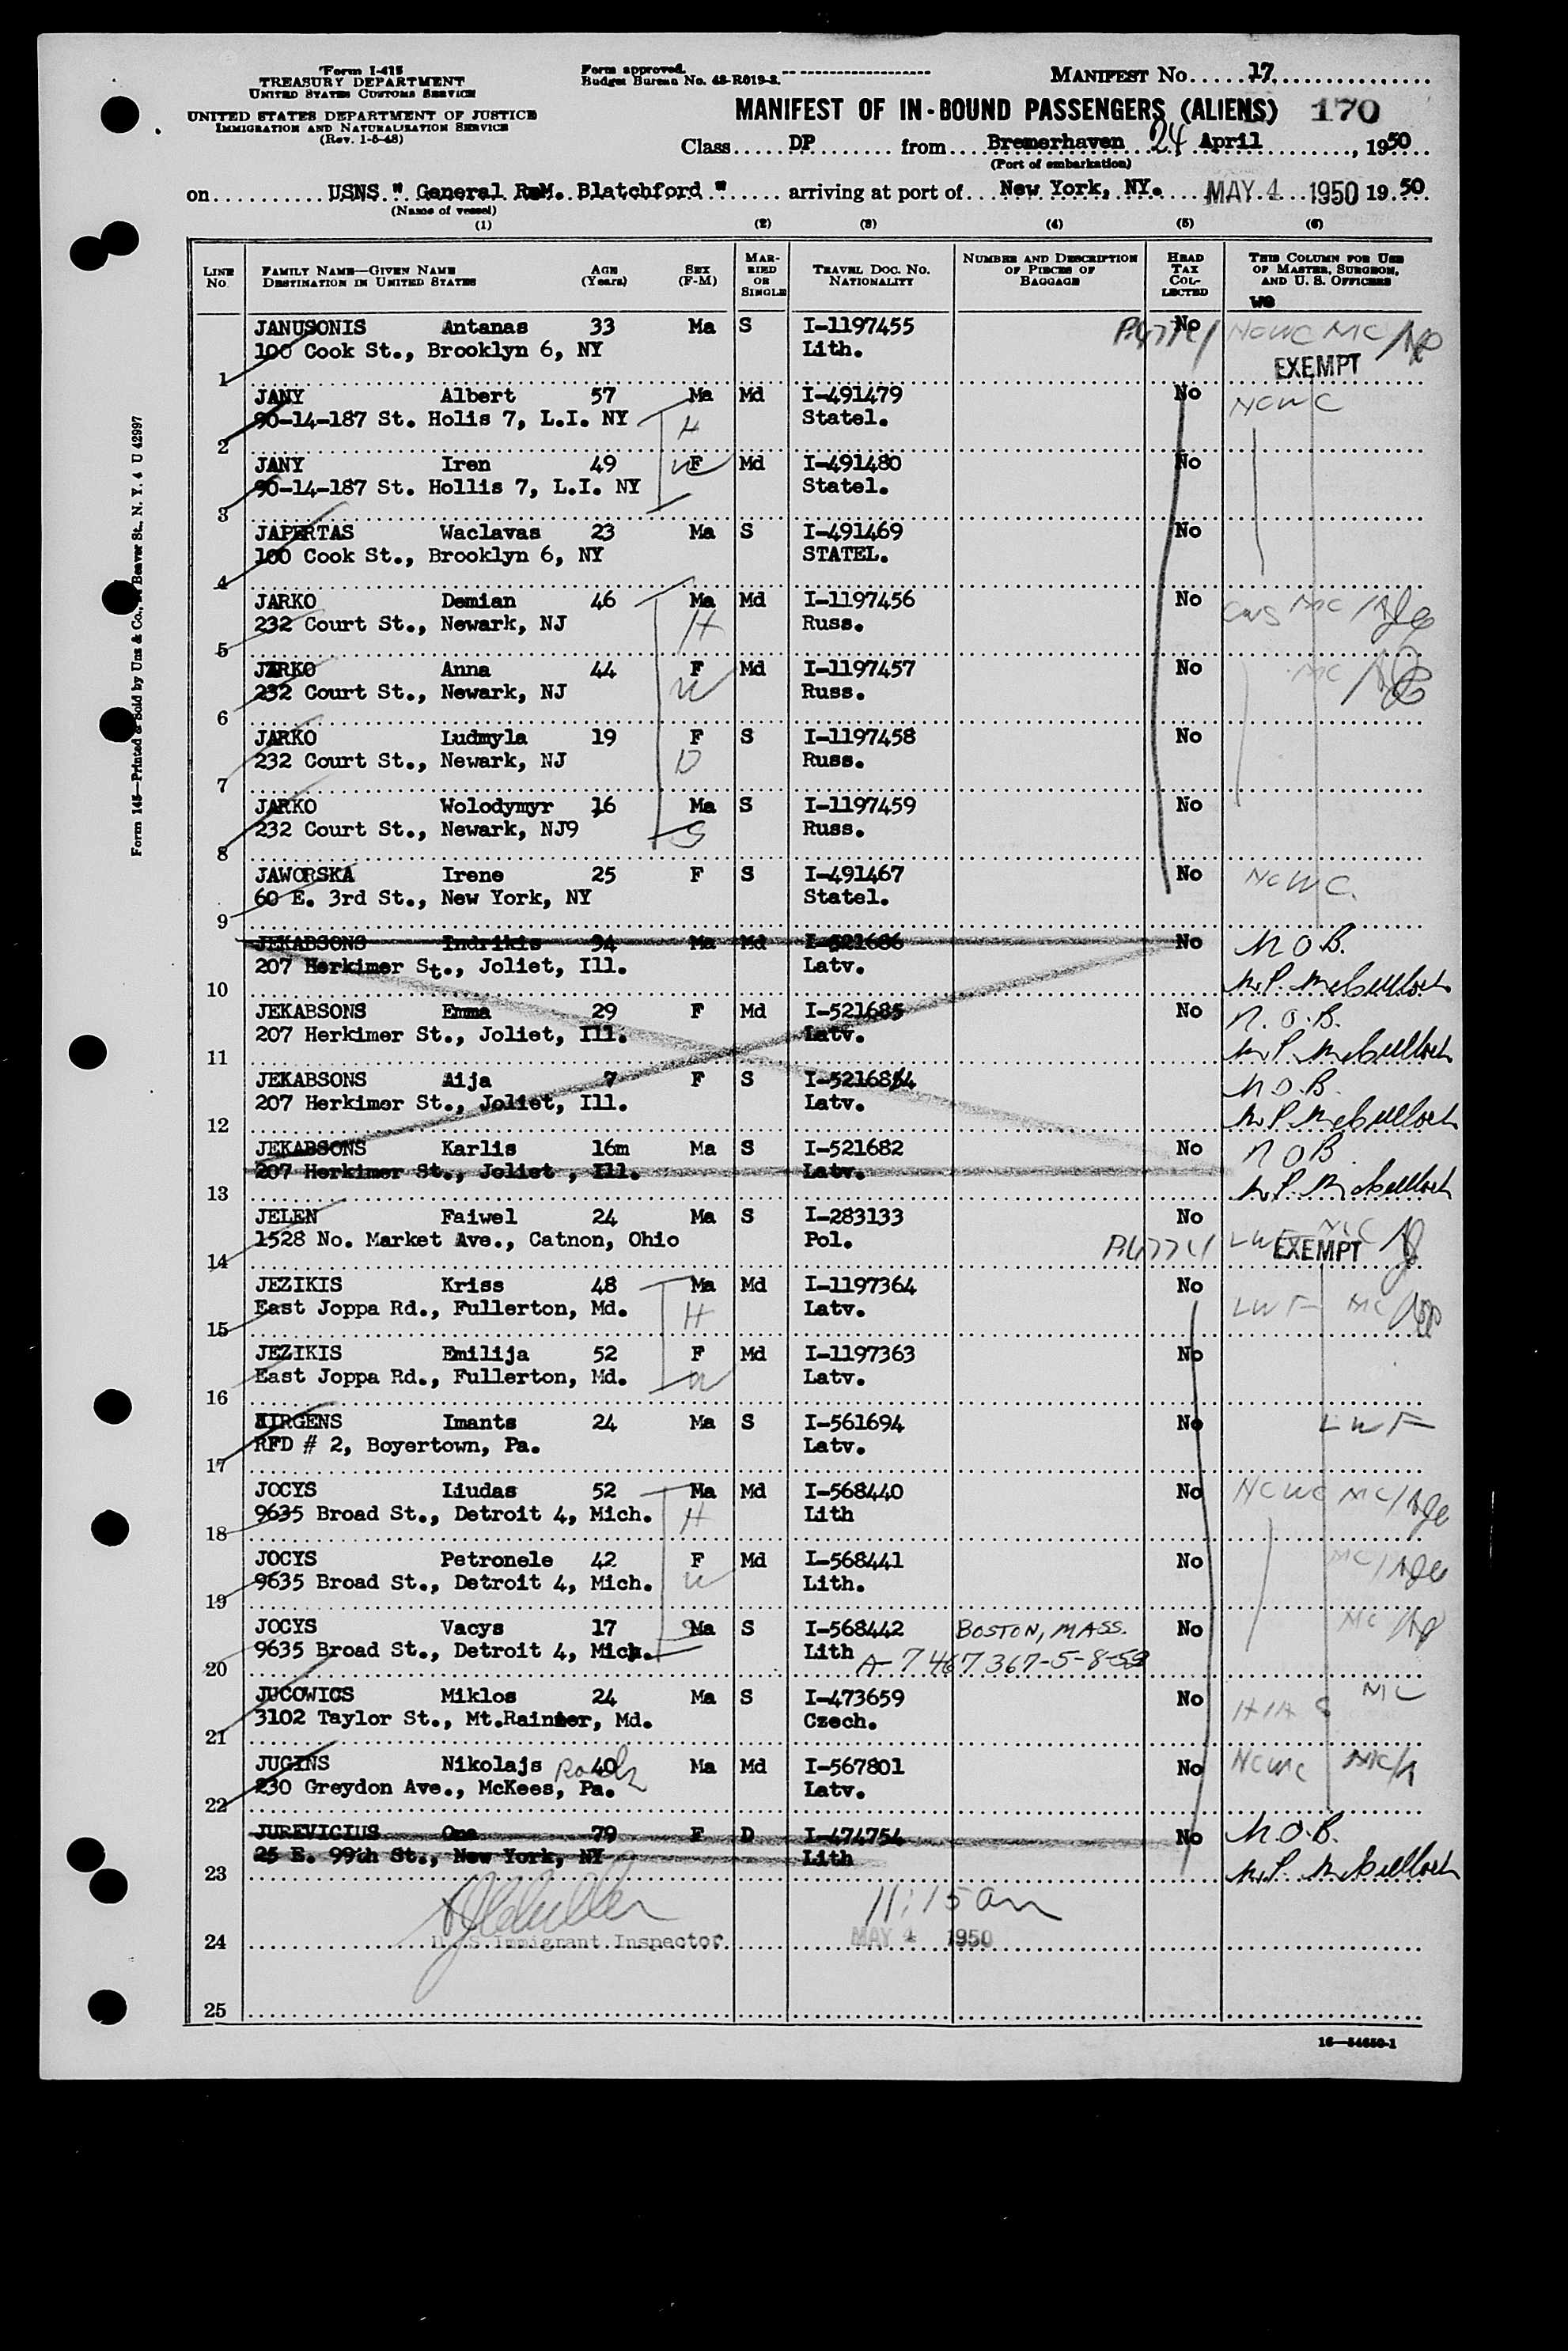 Form I-415
TREASURY DEPARTMENT
UNITED STATES CUSTOMS SERVICE
UNITED STATES DEPARTMENT OF JUSTICE
IMMIGRATION AND NATURALIZATION SERVICE
(Rev. 1-5-48)
Form approved.
Budget Bureau No. 43-R019-3.
MANIFEST No. 17
MANIFEST OF IN-BOUND PASSENGERS (ALIENS) 170
Class DP from Bremerhaven 24 April, 1950
(Port of embarkation)
on USNS " General R.M. Blatchford " arriving at port of New York, NY. MAY 4 1950 19 50
(Name of vessel)
(1) (2) (3) (4) (5) (6)
LINE No. FAMILY NAME—GIVEN NAME DESTINATION IN UNITED STATES AGE (Years) SEX (F-M) MARRIED OR SINGLE TRAVEL DOC. NO. NATIONALITY NUMBER AND DESCRIPTION OF PIECES OF BAGGAGE HEAD TAX COLLECTED THIS COLUMN FOR USE OF MASTER, SURGEON, AND U. S. OFFICERS
JANUSONIS Antanas 33 Ma S I-1197455 No NCWC MC
100 Cook St., Brooklyn 6, NY Lith. EXEMPT
1
JANY Albert 57 Ma Md I-491479 No NCWC
90-14-187 St. Holis 7, L.I. NY H Statel.
2
JANY Iren 49 W F Md I-491480 No
90-14-187 St. Hollis 7, L.I. NY Statel.
3
JAPERTAS Waclavas 23 Ma S I-491469 No
100 Cook St., Brooklyn 6, NY STATEL.
4
JARKO Demian 46 Ma Md I-1197456 No CWS MC
232 Court St., Newark, NJ H Russ.
5
JARKO Anna 44 F Md I-1197457 No MC
232 Court St., Newark, NJ W Russ.
6
JARKO Ludmyla 19 F S I-1197458 No
232 Court St., Newark, NJ D Russ.
7
JARKO Wolodymyr 16 Ma S I-1197459 No
232 Court St., Newark, NJ9 S Russ.
8
JAWORSKA Irene 25 F S I-491467 No NCWC.
60 E. 3rd St., New York, NY Statel.
9
JEKABSONS Indrikis 34 Ma Md I-521686 No N.O.B.
207 Herkimer St., Joliet, Ill. Latv.
10 W.P. McCulloch
JEKABSONS Emma 29 F Md I-521685 No N.O.B.
207 Herkimer St., Joliet, Ill. Latv.
11 W.P. McCulloch
JEKABSONS Aija 7 F S I-521684 No N.O.B.
207 Herkimer St., Joliet, Ill. Latv.
12 W.P. McCulloch
JEKABSONS Karlis 16m Ma S I-521682 No N.O.B.
207 Herkimer St., Joliet , Ill. Latv.
13 W.P. McCulloch
JELEN Faiwel 24 Ma S I-283133 No MC
1528 No. Market Ave., Catnon, Ohio Pol. EXEMPT
14
JEZIKIS Kriss 48 Ma Md I-1197364 No LWF MC
East Joppa Rd., Fullerton, Md. H Latv.
15
JEZIKIS Emilija 52 F Md I-1197363 No
East Joppa Rd., Fullerton, Md. W Latv.
16
JIRGENS Imants 24 Ma S I-561694 No LWF
RFD # 2, Boyertown, Pa. Latv.
17
JOCYS Liudas 52 Ma Md I-568440 No NCWC MC
9635 Broad St., Detroit 4, Mich. H Lith
18
JOCYS Petronele 42 F Md I-568441 No MC
9635 Broad St., Detroit 4, Mich. W Lith.
19
JOCYS Vacys 17 S Ma S I-568442 BOSTON, MASS. No MC
9635 Broad St., Detroit 4, Mich. Lith A-7467367-5-8-53
20
JUCOWICS Miklos 24 Ma S I-473659 No HIAS MC
3102 Taylor St., Mt.Rainier, Md. Czech.
21
JUGINS Nikolajs 40 Ma Md I-567801 No NCWC MC
230 Greydon Ave., McKees, Pa. Latv.
22
JUREVICIUS Ona 79 F D I-474754 No N.O.B.
25 E. 99th St., New York, NY Lith
23 W.P. McCulloch
11:15 am
24 U.S. Immigrant Inspector MAY 4 1950
25
16—54650-1
Form 145—Printed & Sold by Unz & Co., Beaver St., N. Y. 4 U 42997